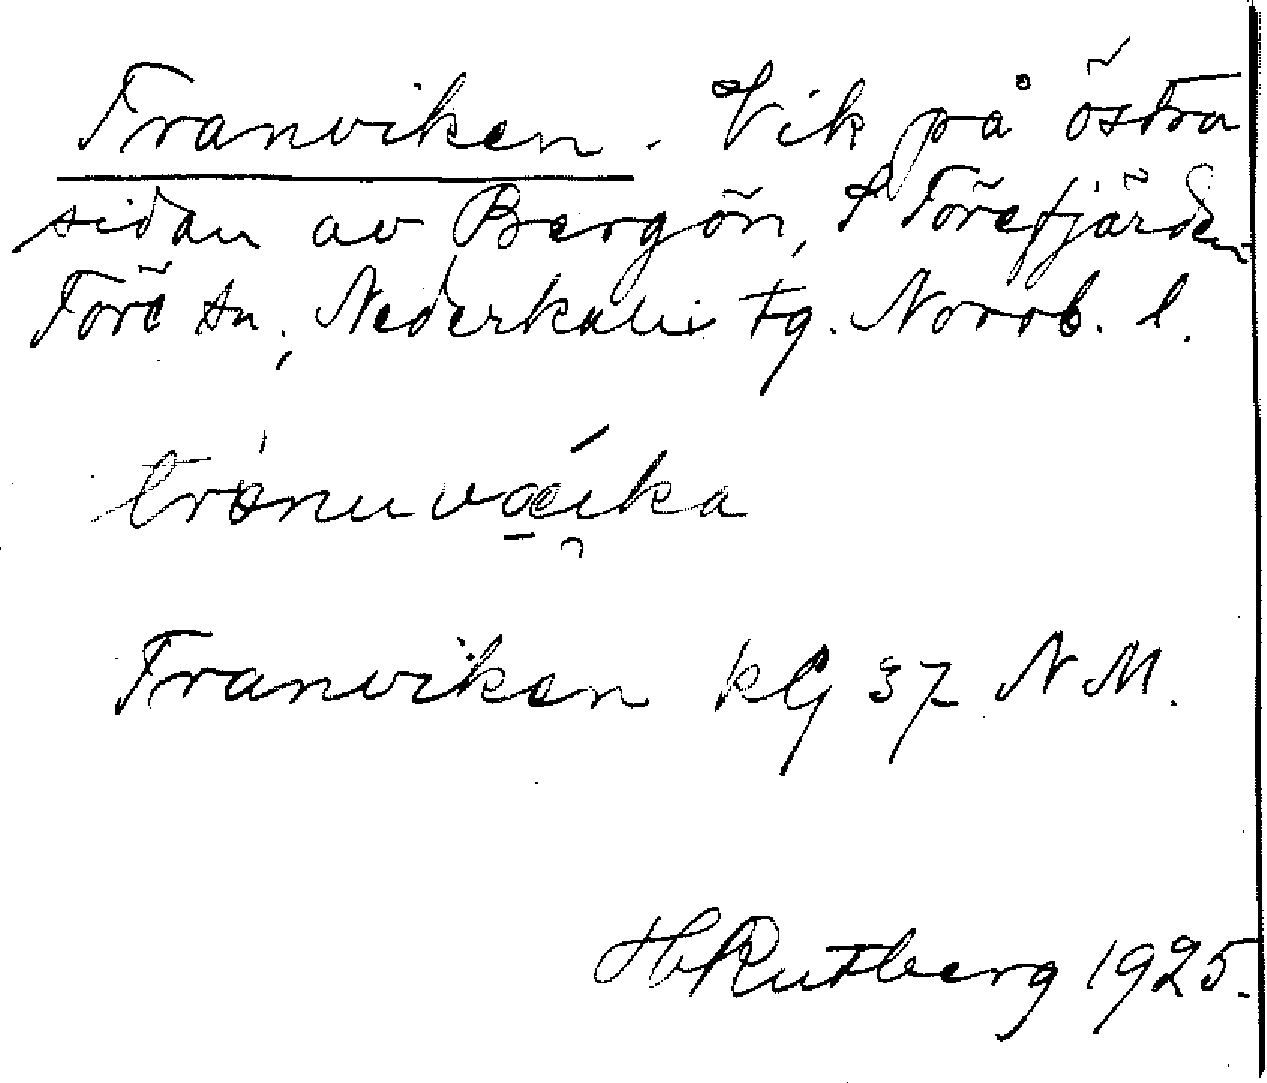 Tranviken. Vik på östra
sidan av Bergön, i Törefjärden
Töre sn, Nederkalix tg. Norrb. l.
Tranviken kG 37 NM.
H Rutberg 1925.